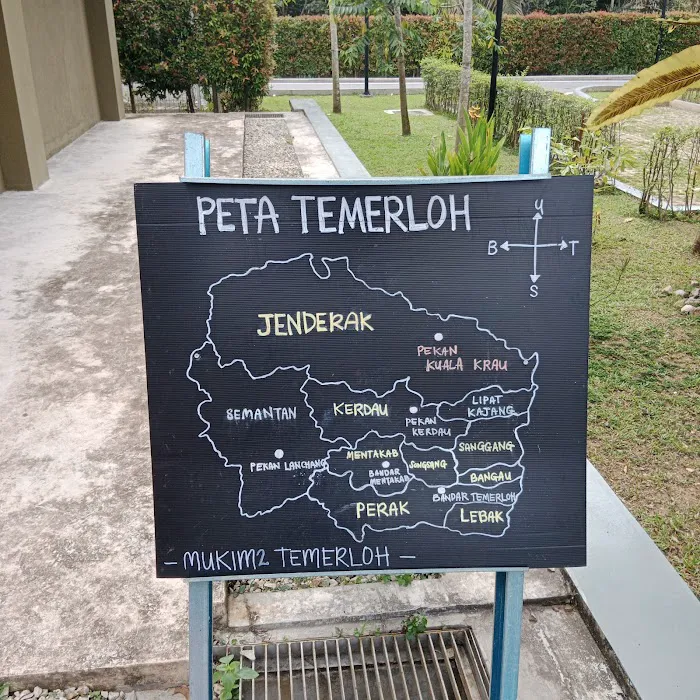 PETA TEMERLOH
U
B T
S
JENDERAK
PEKAN
KUALA KRAU
SEMANTAN
KERDAU
PEKAN
KERDAU
LIPAT
KAJANG
SANGGANG
MENTAKAB
BANDAR
MENTAKAB
SONGSANG
BANGAU
PEKAN LANCHANG
BANDAR TEMERLOH
PERAK
LEBAK
- MUKIM2 TEMERLOH -